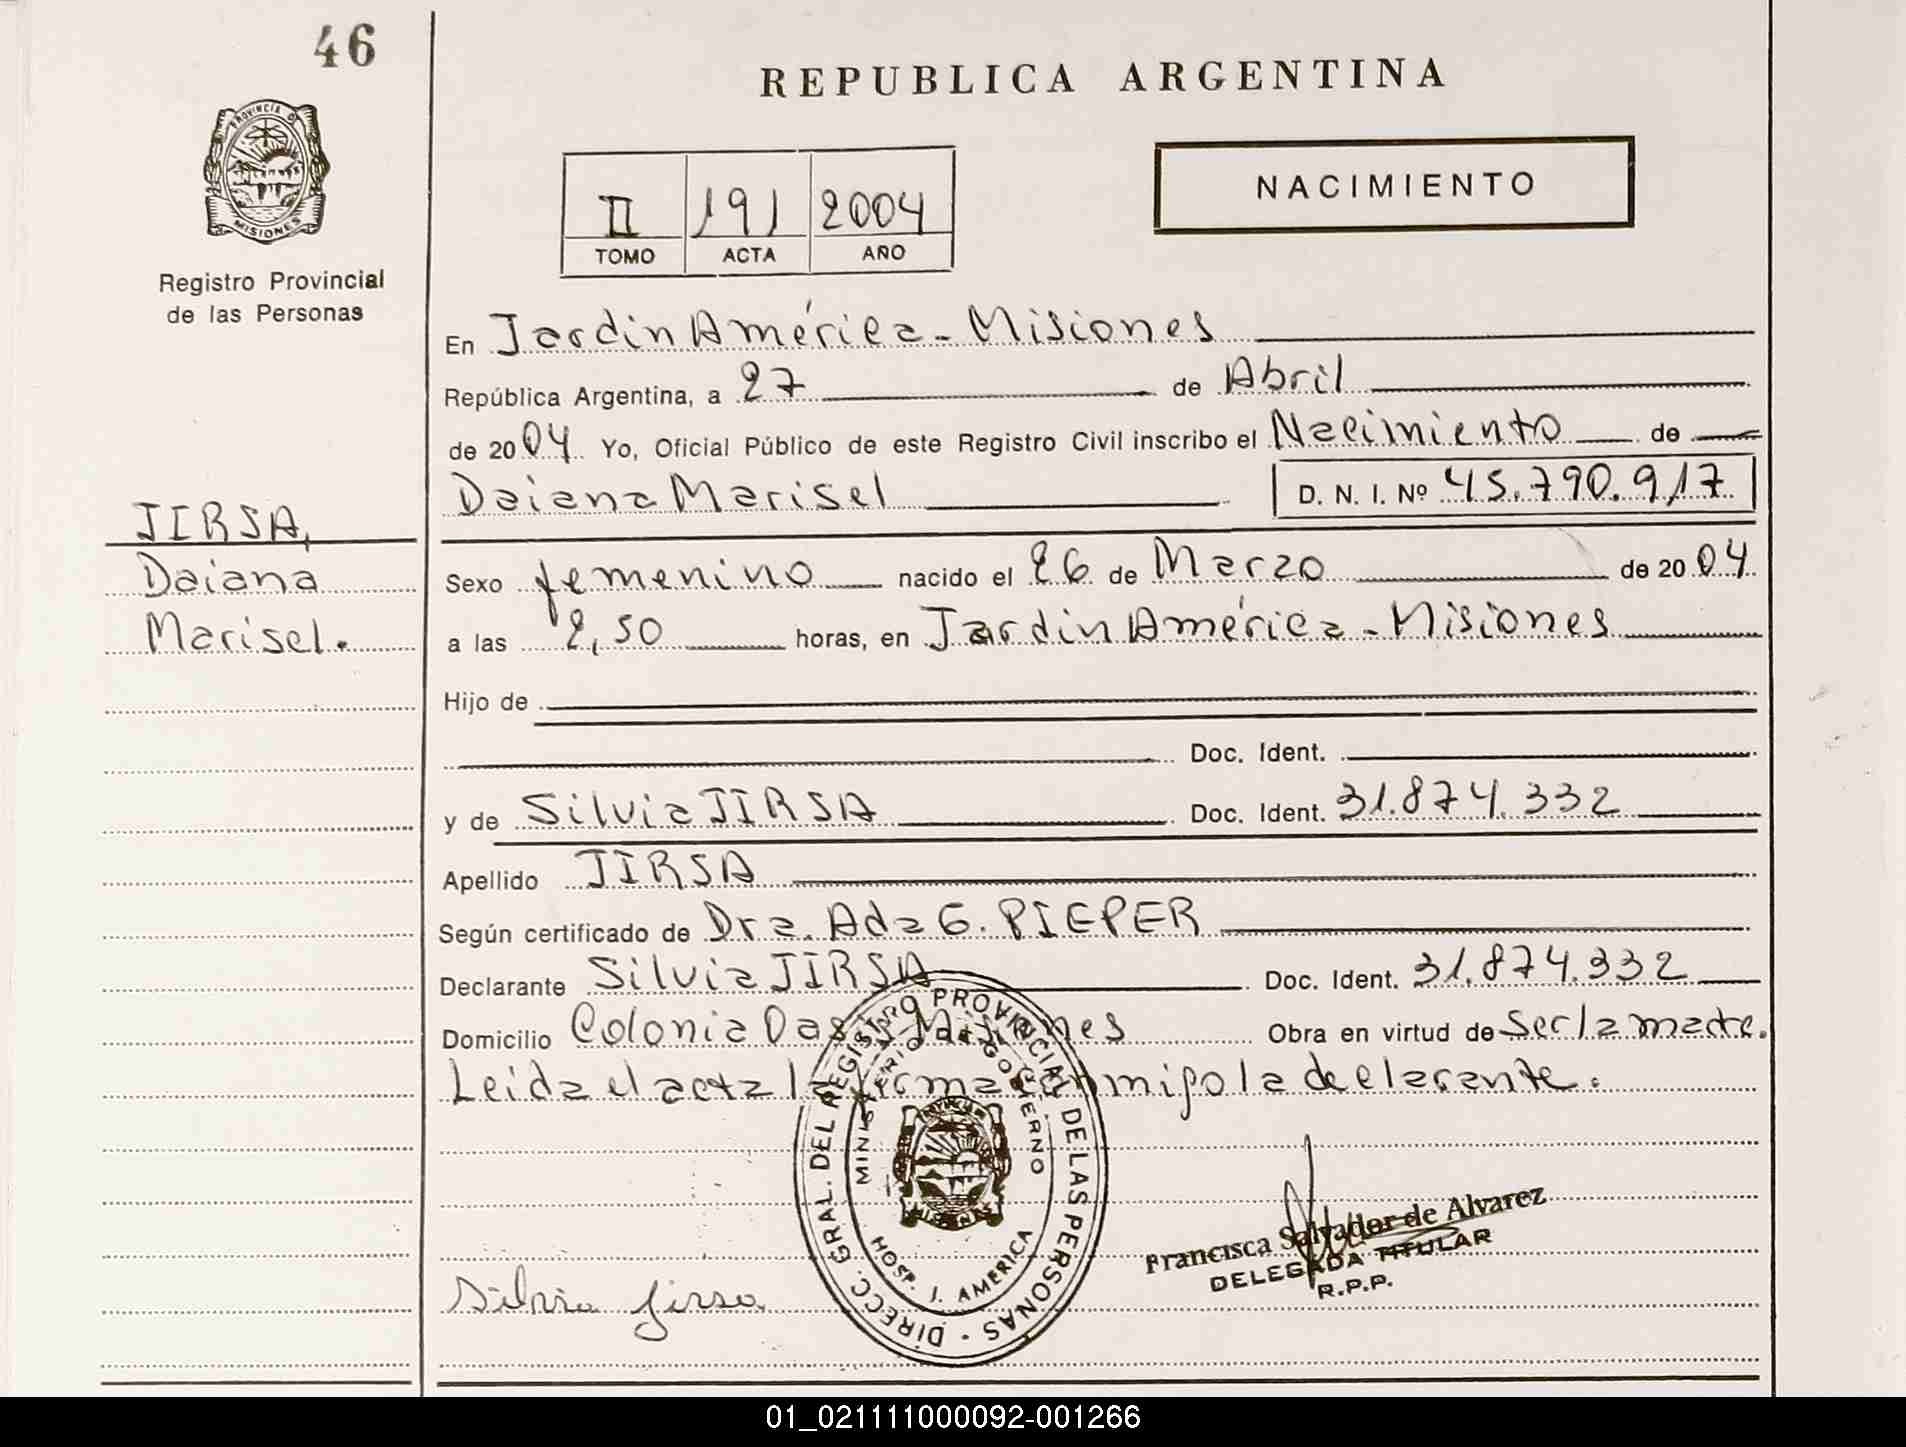 46
REPUBLICA ARGENTINA
PROVINCIA D
MISIONES
Registro Provincial
de las Personas
II 191 2004
TOMO ACTA AÑO
NACIMIENTO
En Jardin América - Misiones
República Argentina, a 27 de Abril
de 2004 Yo, Oficial Público de este Registro Civil inscribo el Nacimiento de
Daiana Marisel D. N. I. Nº 45.790.917
JIRSA,
Daiana
Marisel.
Sexo femenino nacido el 26 de Marzo de 2004
a las 2,50 horas, en Jardin América - Misiones
Hijo de
Doc. Ident.
y de Silvia JIRSA Doc. Ident. 31.874.332
Apellido JIRSA
Según certificado de Dra. Ada G. PIEPER
Declarante Silvia JIRSA Doc. Ident. 31.874.332
Domicilio Colonia Oasis Misiones Obra en virtud de Ser la madre.
Leida el acta la firma con migo la declarante.
DIRECC. GRAL. DEL REGISTRO PROVINCIAL DE LAS PERSONAS
MINISTERIO DE GOBIERNO
MISIONES
HOSP. J. AMERICA
Silvia Jirsa
Francisca Salvador de Alvarez
DELEGADA TITULAR
R.P.P.
01_021111000092-001266